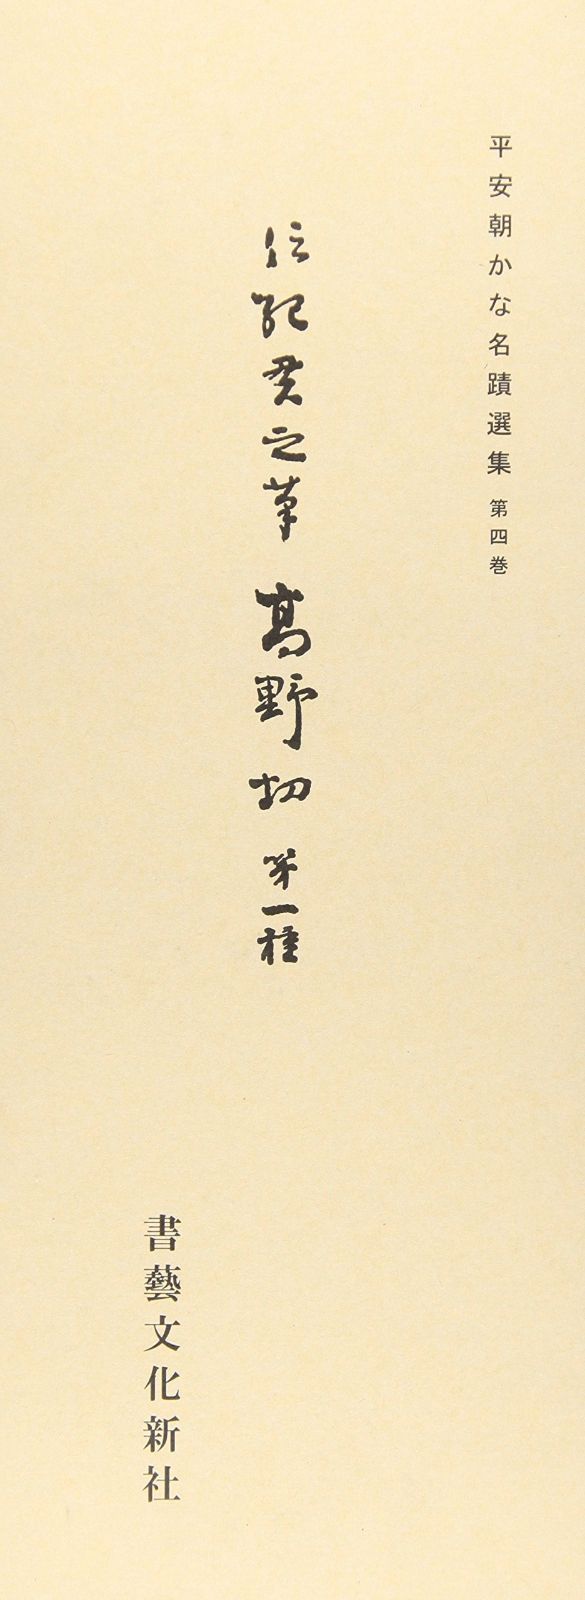 平安朝かな名蹟選集 第四巻
伝紀貫之筆 高野切 第一種
書藝文化新社